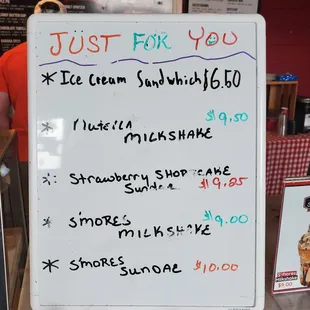 JUST FOR YOU
* Ice Cream Sandwhich $6.50
* Nutella $9.50
MILKSHAKE
* Strawberry SHORTCAKE
Sundae $9.25
* S'MORES $9.00
MILKSHAKE
* S'MORES
SUNDAE $10.00
S'mores
Milkshake